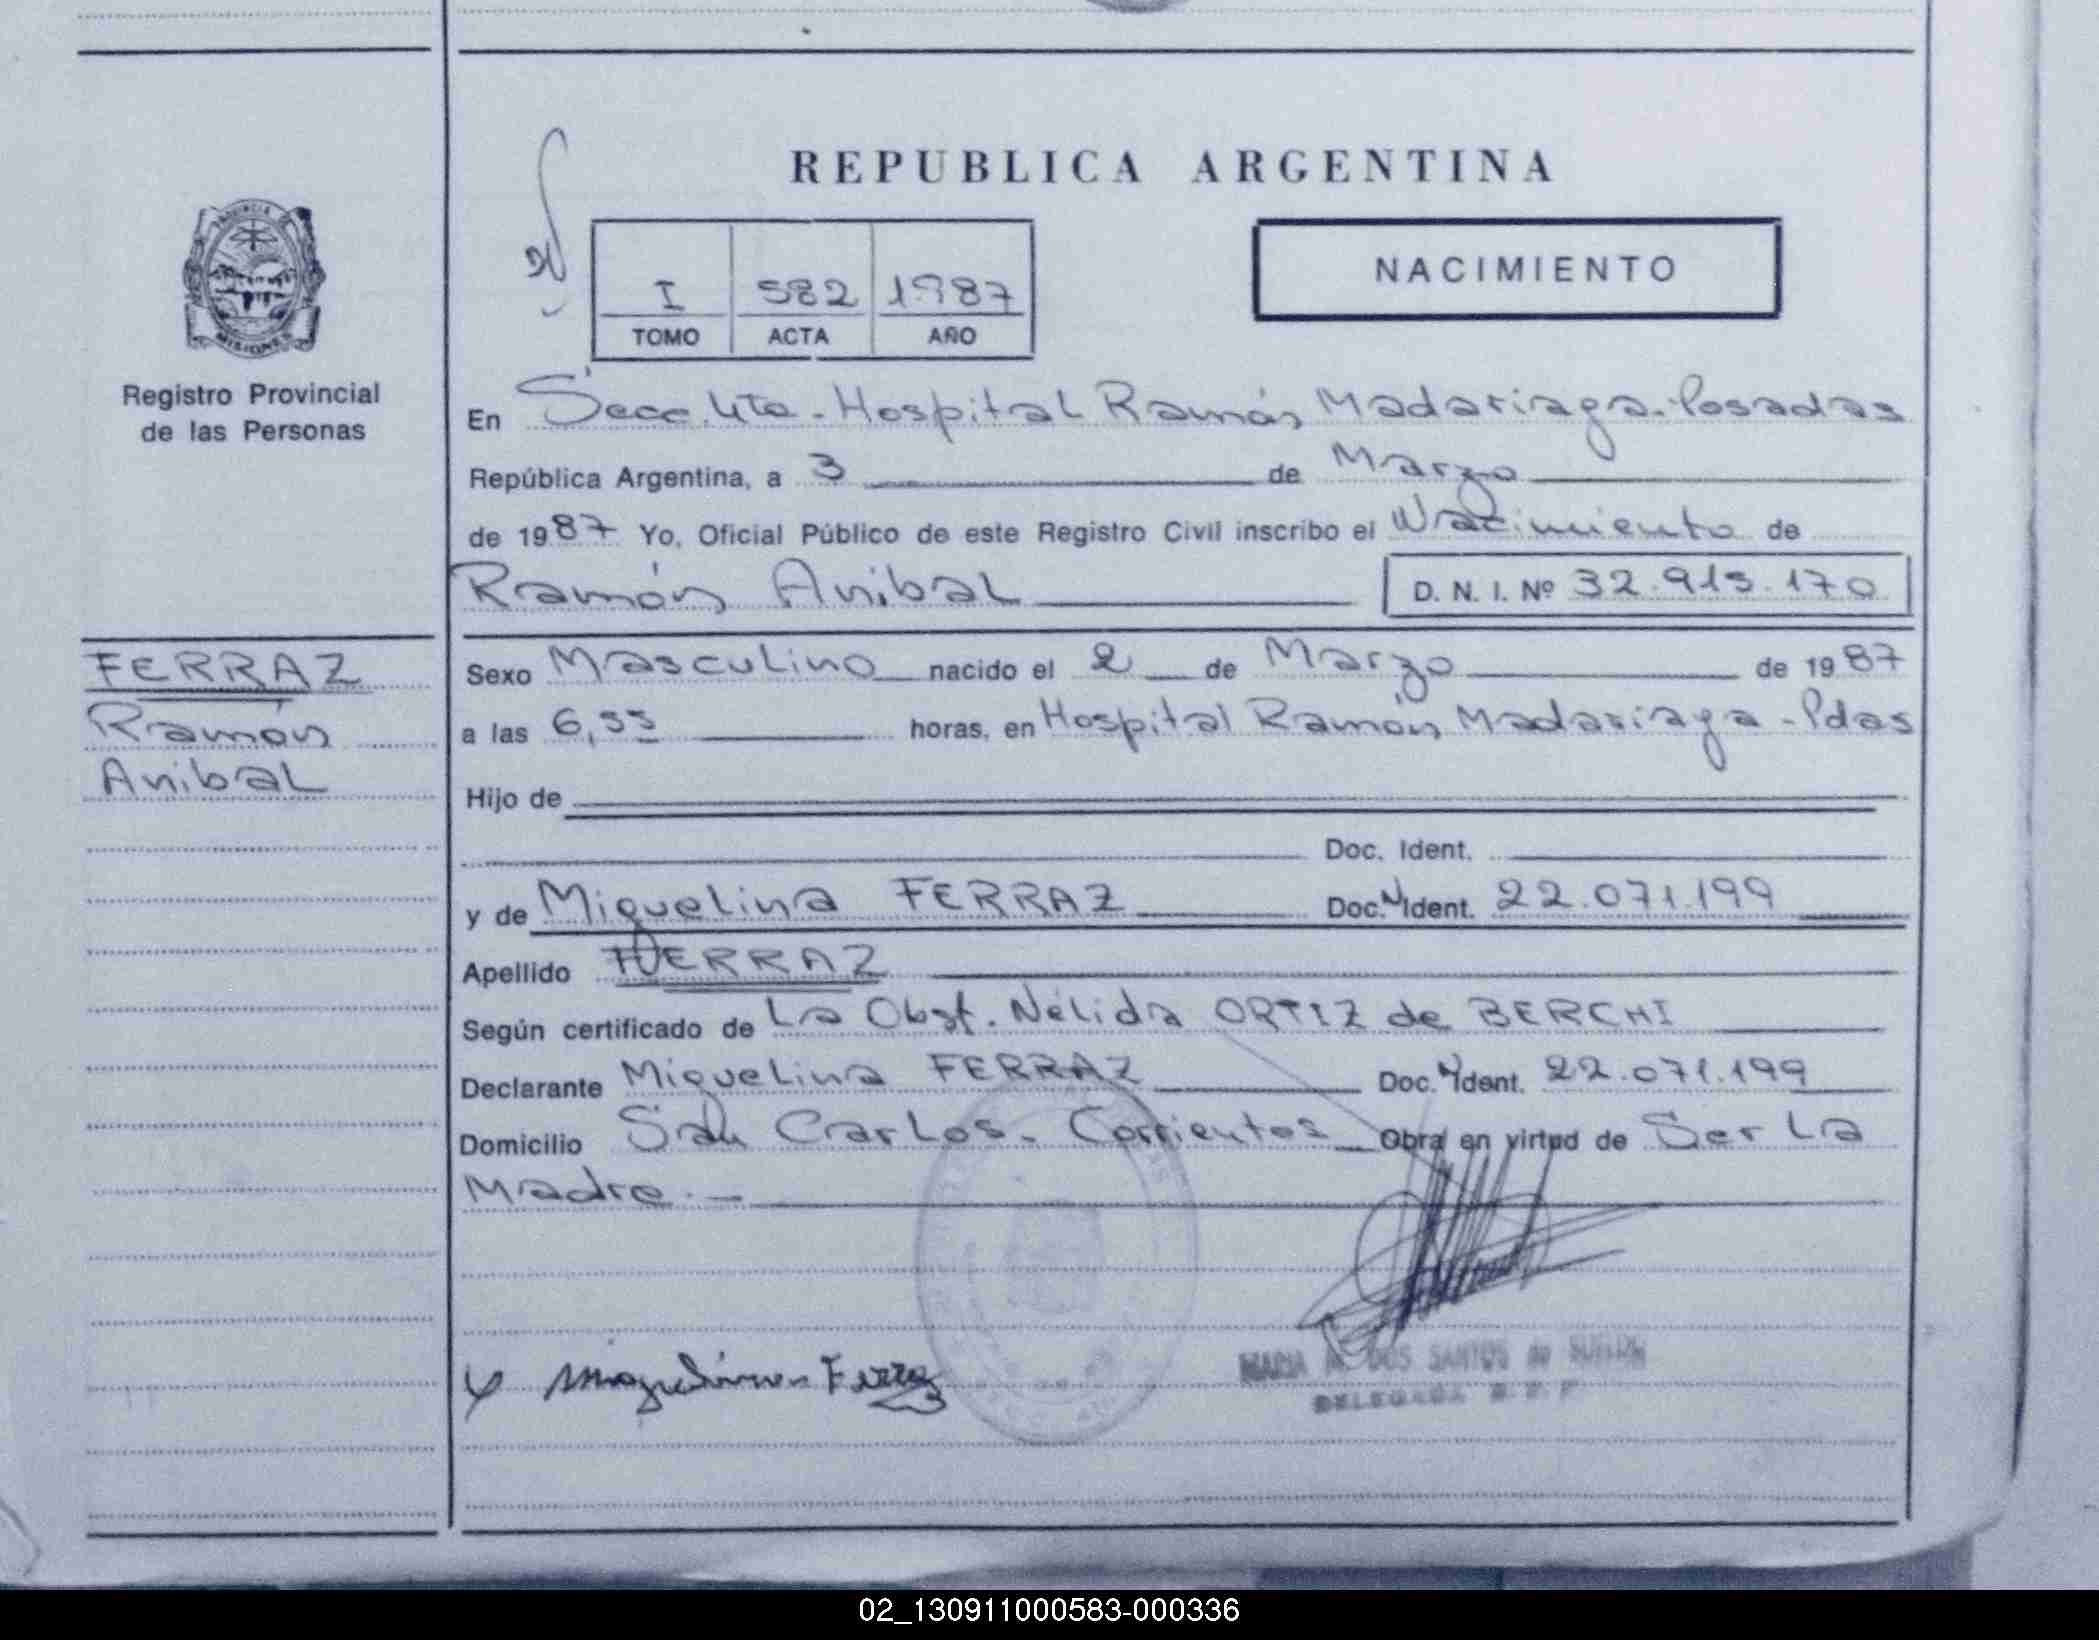 REPUBLICA ARGENTINA
I 582 1987
TOMO ACTA AÑO
NACIMIENTO
PROVINCIA DE
MISIONES
Registro Provincial
de las Personas
En Secc. 4ta - Hospital Ramón Madariaga - Posadas
República Argentina, a 3 de Marzo
de 1987 Yo, Oficial Público de este Registro Civil inscribo el Nacimiento de
Ramón Anibal D. N. I. Nº 32.915.170
FERRAZ
Ramón
Anibal
Sexo Masculino nacido el 2 de Marzo de 1987
a las 6,55 horas, en Hospital Ramón Madariaga - Pdas
Hijo de
Doc. Ident.
y de Miguelina FERRAZ Doc. Ident. 22.071.199
Apellido FERRAZ
Según certificado de La Obst. Nélida ORTIZ de BERCHI
Declarante Miguelina FERRAZ Doc. Ident. 22.071.199
Domicilio San Carlos - Corrientes Obra en virtud de Ser La
Madre. -
Miguelina Ferraz
MARIA DOS SANTOS de
DELEGADA R. P. P.
02_130911000583-000336